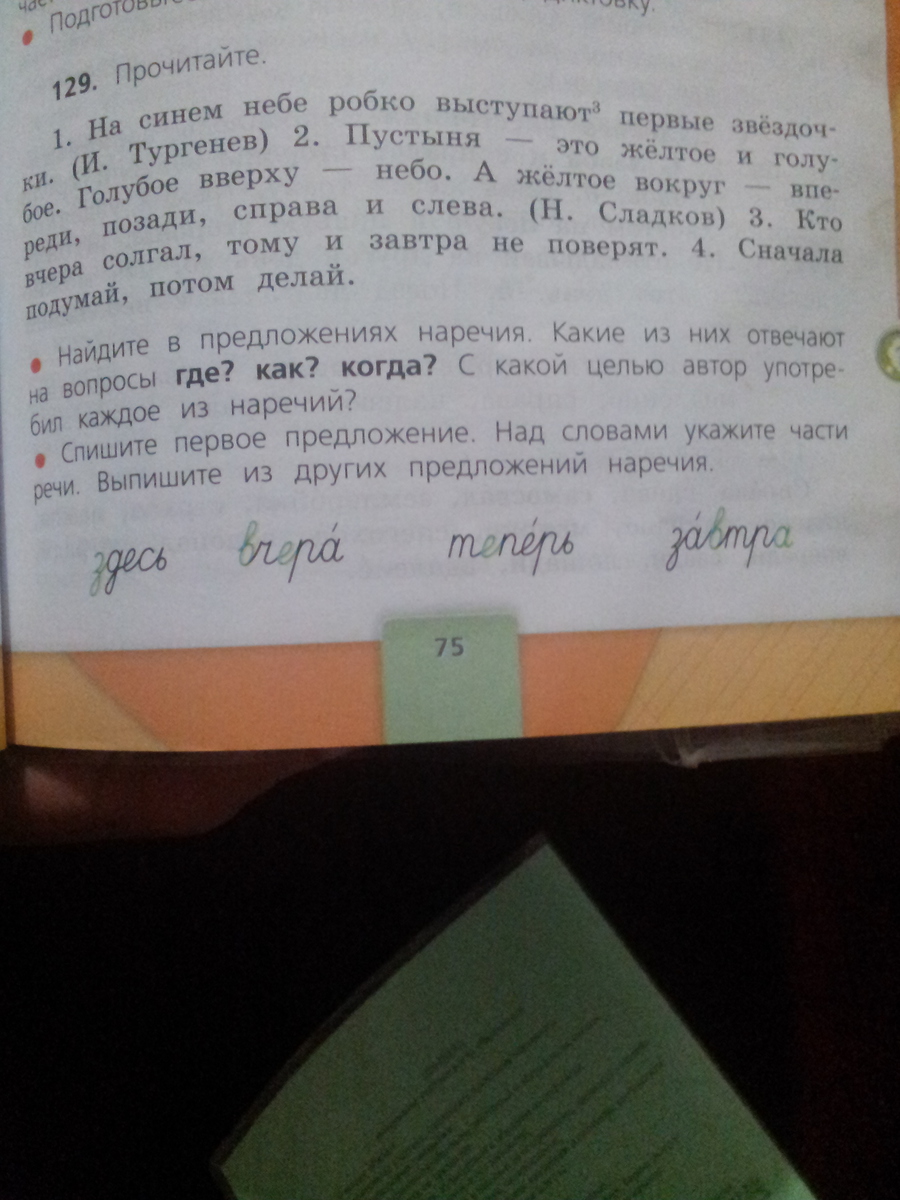 129. Прочитайте.
1. На синем небе робко выступают³ первые звёздоч-
ки. (И. Тургенев) 2. Пустыня — это жёлтое и голу-
бое. Голубое вверху — небо. А жёлтое вокруг — впе-
реди, позади, справа и слева. (Н. Сладков) 3. Кто
вчера солгал, тому и завтра не поверят. 4. Сначала
подумай, потом делай.
• Найдите в предложениях наречия. Какие из них отвечают
на вопросы где? как? когда? С какой целью автор употре-
бил каждое из наречий?
• Спишите первое предложение. Над словами укажите части
речи. Выпишите из других предложений наречия.
здесь вчера́ тепе́рь за́втра
75